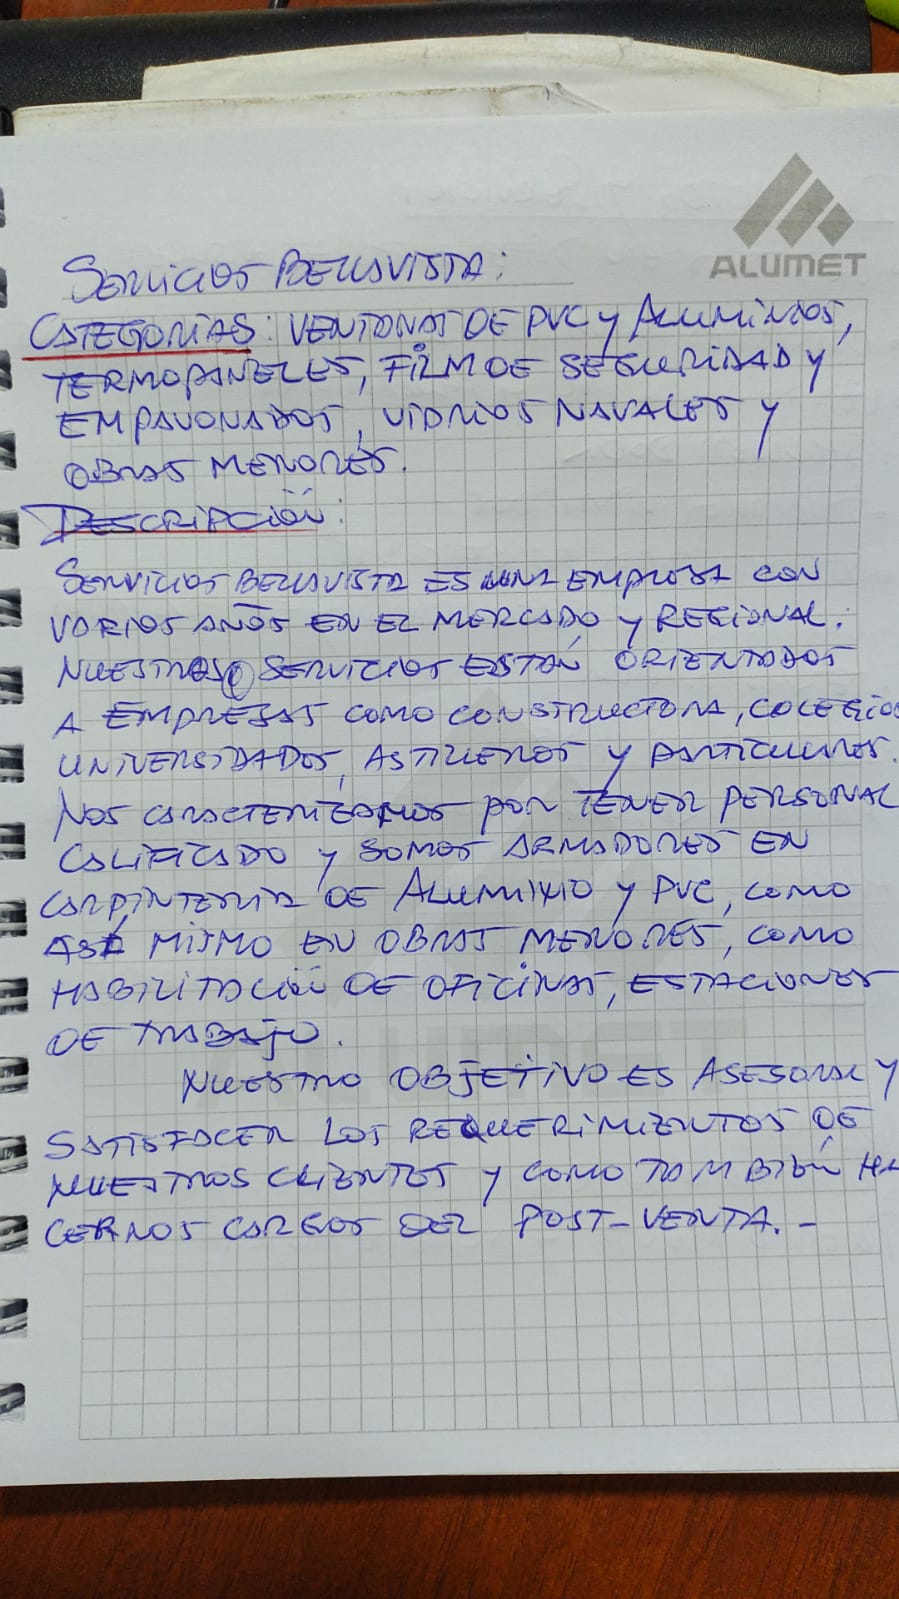 ALUMET
SERVICIOS BELLAVISTA:
CATEGORIAS: VENTANAS DE PVC Y ALUMINIOS,
TERMOPANELES, FILM DE SEGURIDAD Y
EMPAVONADOS, VIDRIOS NAVALES Y
OBRAS MENORES.
DESCRIPCIÓN:
SERVICIOS BELLAVISTA ES UNA EMPRESA CON
VARIOS AÑOS EN EL MERCADO Y REGIONAL.
NUESTROS SERVICIOS ESTÁN ORIENTADOS
A EMPRESAS COMO CONSTRUCTORA, COLEGIOS
UNIVERSIDADES, ASTILLEROS Y PARTICULARES.
NOS CARACTERIZAMOS POR TENER PERSONAL
CALIFICADO Y SOMOS ARMADORES EN
CARPINTERIA DE ALUMINIO Y PVC, COMO
ASI MISMO EN OBRAS MENORES, COMO
HABILITACIÓN DE OFICINAS, ESTACIONES
DE TRABAJO.
NUESTRO OBJETIVO ES ASESORAR Y
SATISFACER LOS REQUERIMIENTOS DE
NUESTROS CLIENTES Y COMO TAMBIÉN HA
CERNOS CARGOS DEL POST-VENTA.-